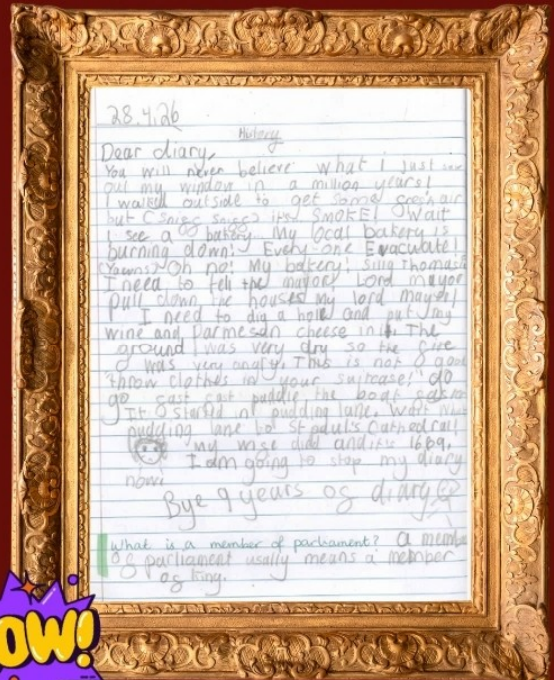 28.4.26
History
Dear diary,
You will never believe what I just saw
out my window in a million years!
I walked outside to get some fresh air
but (snigg snigg) it's SMOKE! Wait
I see a bakery. My local bakery is
burning down! Every one Evacuate!
(Yawns) Oh no! My bakery! Silly Thomas
I need to tell the mayor, Lord mayor
Pull down the houses my lord mayor!
I need to dig a hole and put my
wine and Parmesan cheese in it. The
ground was very dry so the fire
was very angry. This is not good
"throw clothes in your suitcase!" do
go fast fast paddle the boat
It started in pudding lane. Wait what
pudding lane to St paul's Cathedral!
my wise died and it's 1669.
I am going to stop my diary
now!
Bye 9 years of diary
What is a member of parliament? a memb
og parliament usally means a member
og king.
OW!